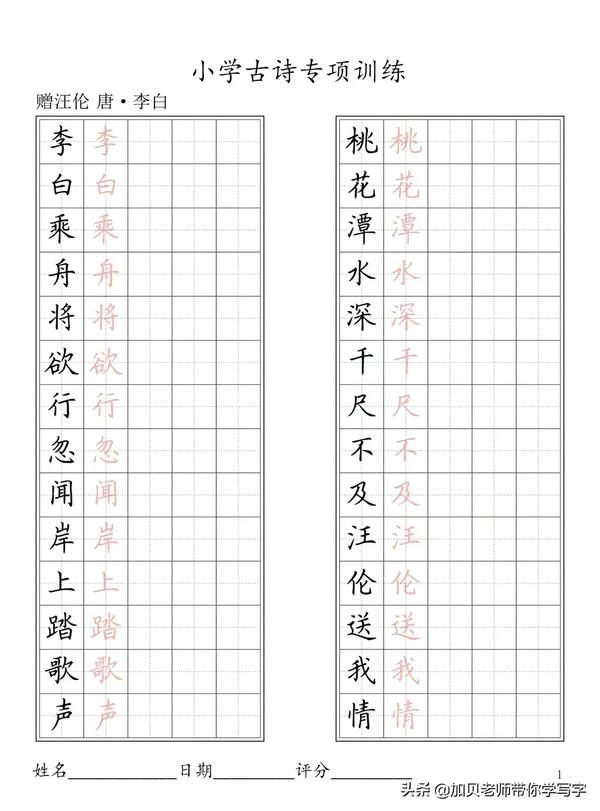 小学古诗专项训练
赠汪伦 唐·李白
李 李
白 白
乘 乘
舟 舟
将 将
欲 欲
行 行
忽 忽
闻 闻
岸 岸
上 上
踏 踏
歌 歌
声 声
桃 桃
花 花
潭 潭
水 水
深 深
千 千
尺 尺
不 不
及 及
汪 汪
伦 伦
送 送
我 我
情 情
姓名____________日期_________评分_________
1
头条 @加贝老师带你学写字